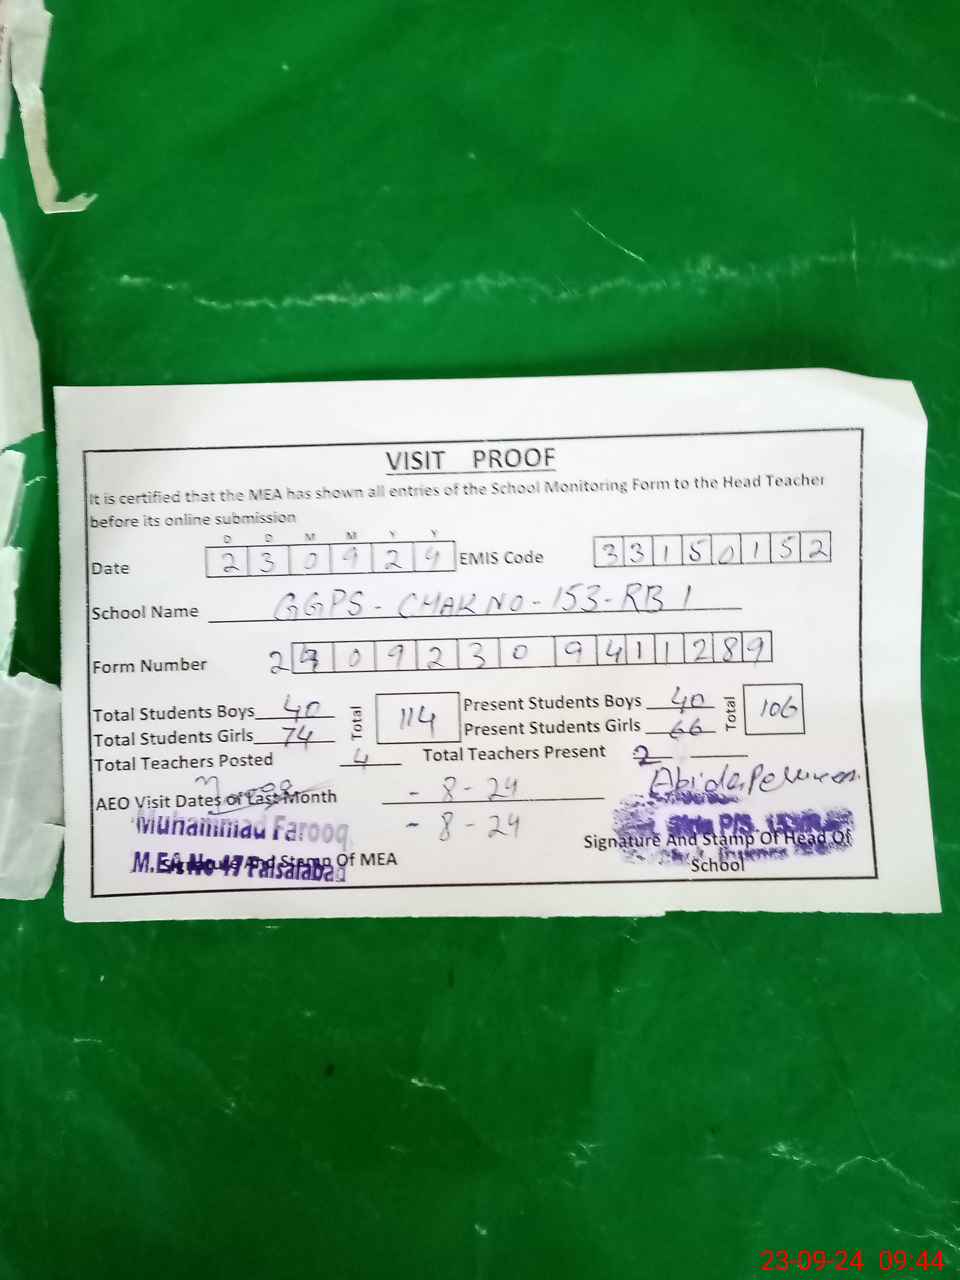 VISIT PROOF
It is certified that the MEA has shown all entries of the School Monitoring Form to the Head Teacher
before its online submission
D D M M Y Y
Date 230924 EMIS Code 33150152
School Name GGPS - CHAK NO - 153 - RB 1
Form Number 29092309411289
Total Students Boys 40 Total 114 Present Students Boys 40 Total 106
Total Students Girls 74 Present Students Girls 66
Total Teachers Posted 4 Total Teachers Present 2
AEO Visit Dates of Last Month - 8 - 24
- 8 - 24
Abida Perveen
Muhammad Farooq
M.EA No 47 Faisalabad
Signature And Stamp Of MEA
Signature And Stamp Of Head Of
School
23-09-24 09:44